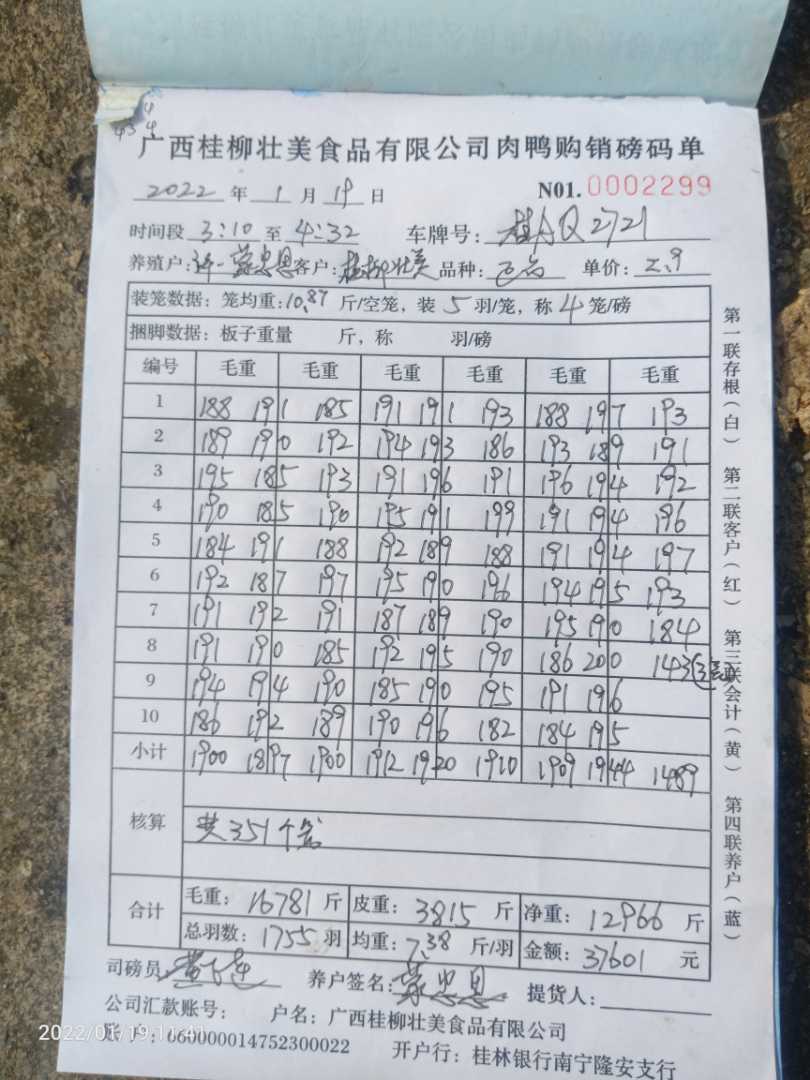 广西桂柳壮美食品有限公司肉鸭购销磅码单
2022 年 1 月 19 日 N01.0002299
时间段 3:10 至 4:32 车牌号: Q2721
养殖户: 蒙忠恩 客户: 桂柳壮美 品种: 单价: 2.9
装笼数据: 笼均重: 10.87 斤/空笼, 装 5 羽/笼, 称 4 笼/磅
捆脚数据: 板子重量 斤, 称 羽/磅
编号 毛重 毛重 毛重 毛重 毛重 毛重
1 188 191 185 191 191 193 188 197 193
2 189 190 192 194 193 186 193 189 191
3 195 185 193 191 196 191 196 194 192
4 190 185 190 195 191 199 191 194 196
5 184 191 188 192 189 188 191 194 197
6 192 187 197 195 190 196 194 195 193
7 191 192 191 187 189 190 195 190 184
8 191 190 185 192 195 190 186 200 143
9 194 194 190 185 190 195 191 196
10 186 192 189 190 196 182 184 195
小计 1900 1897 1900 1912 1920 1910 1909 1944 1489
核算 共351个笼
合计 毛重: 16781 斤 皮重: 3815 斤 净重: 12966 斤
总羽数: 1755 羽 均重: 7.38 斤/羽 金额: 37601 元
司磅员: 养户签名: 蒙忠恩 提货人:
公司汇款账号: 户名: 广西桂柳壮美食品有限公司
账户: 660000014752300022 开户行: 桂林银行南宁隆安支行
第一联存根(白) 第二联客户(红) 第三联会计(黄) 第四联养户(蓝)
2022/01/19 11:41